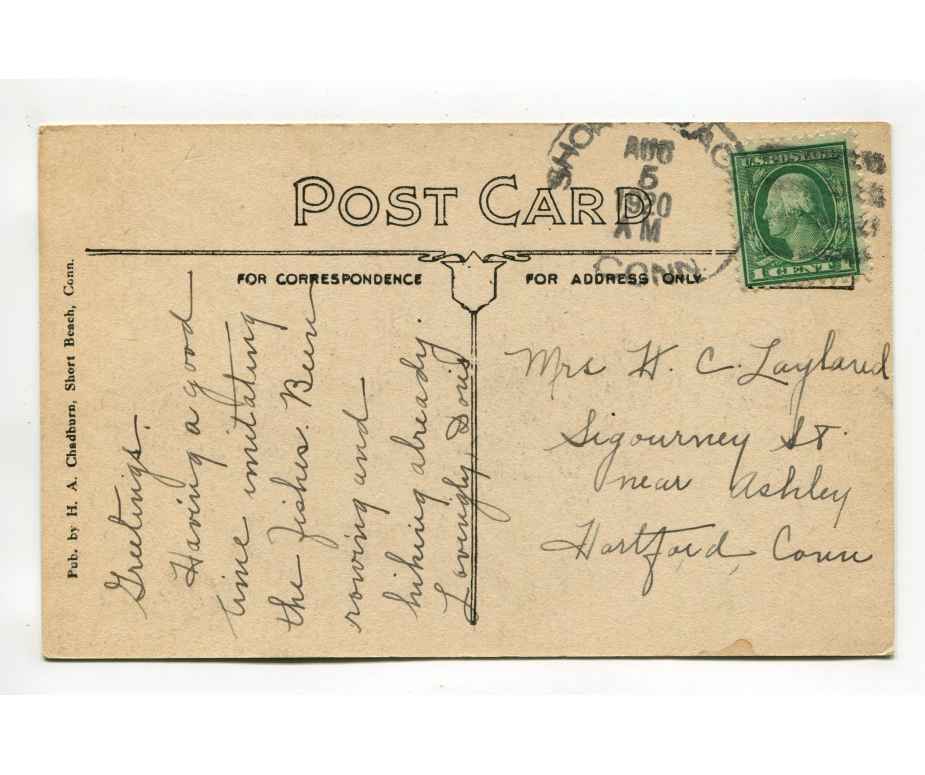 POST CARD
AUG
5
1920
AM
CONN.
U.S. POSTAGE
1 CENT 1
FOR CORRESPONDENCE
FOR ADDRESS ONLY
Pub. by H. A. Chadburn, Short Beach, Conn.
Greetings.
Having a good
time imitating
the fishes. Been
rowing and
hiking already.
Lovingly, Doris
Mrs H. C. Laylard
Sigourney St.
near Ashley
Hartford, Conn